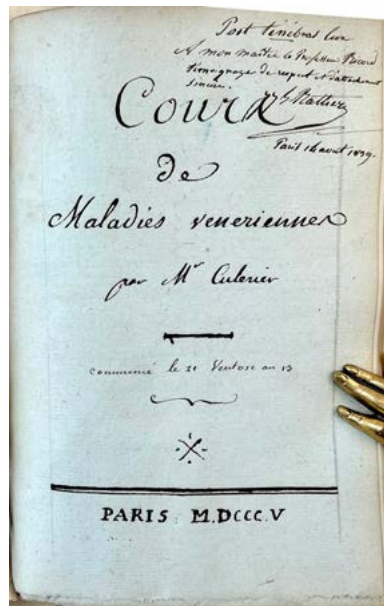 Post ténébras lux
A mon maître le Professeur Ricord
témoignage de respect et d'attachement
sincère.
Paris 14 août 1839.
Cours
de
Maladies veneriennes
par Mr Culerier
commencé le 21 Ventose an 13
PARIS M.DCCC.V